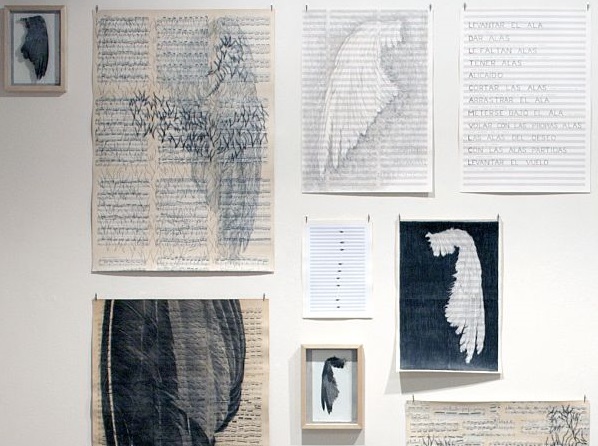 LEVANTAR EL ALA
DAR ALAS
LE FALTAN ALAS
TENER ALAS
ALICAÍDO
CORTAR LAS ALAS
ARRASTRAR EL ALA
METERSE BAJO EL ALA
VOLAR CON LAS PROPIAS ALAS
LAS ALAS DEL DESEO
CON LAS ALAS PARTIDAS
LEVANTAR EL VUELO